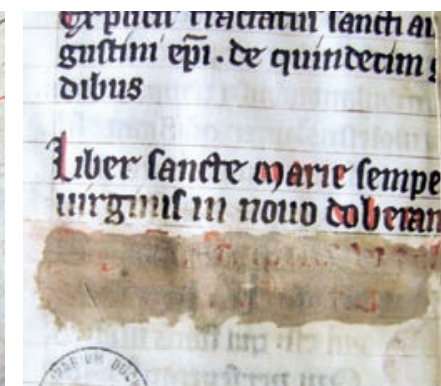 explicit tractatus sancti au
gustini ep̄i. de quindecim g
dibus
Liber sancte marie sempe
uirginis in nouo doberan